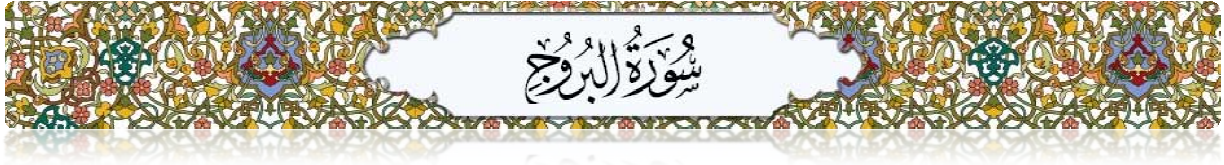 سُورَةُ البُرُوجِ